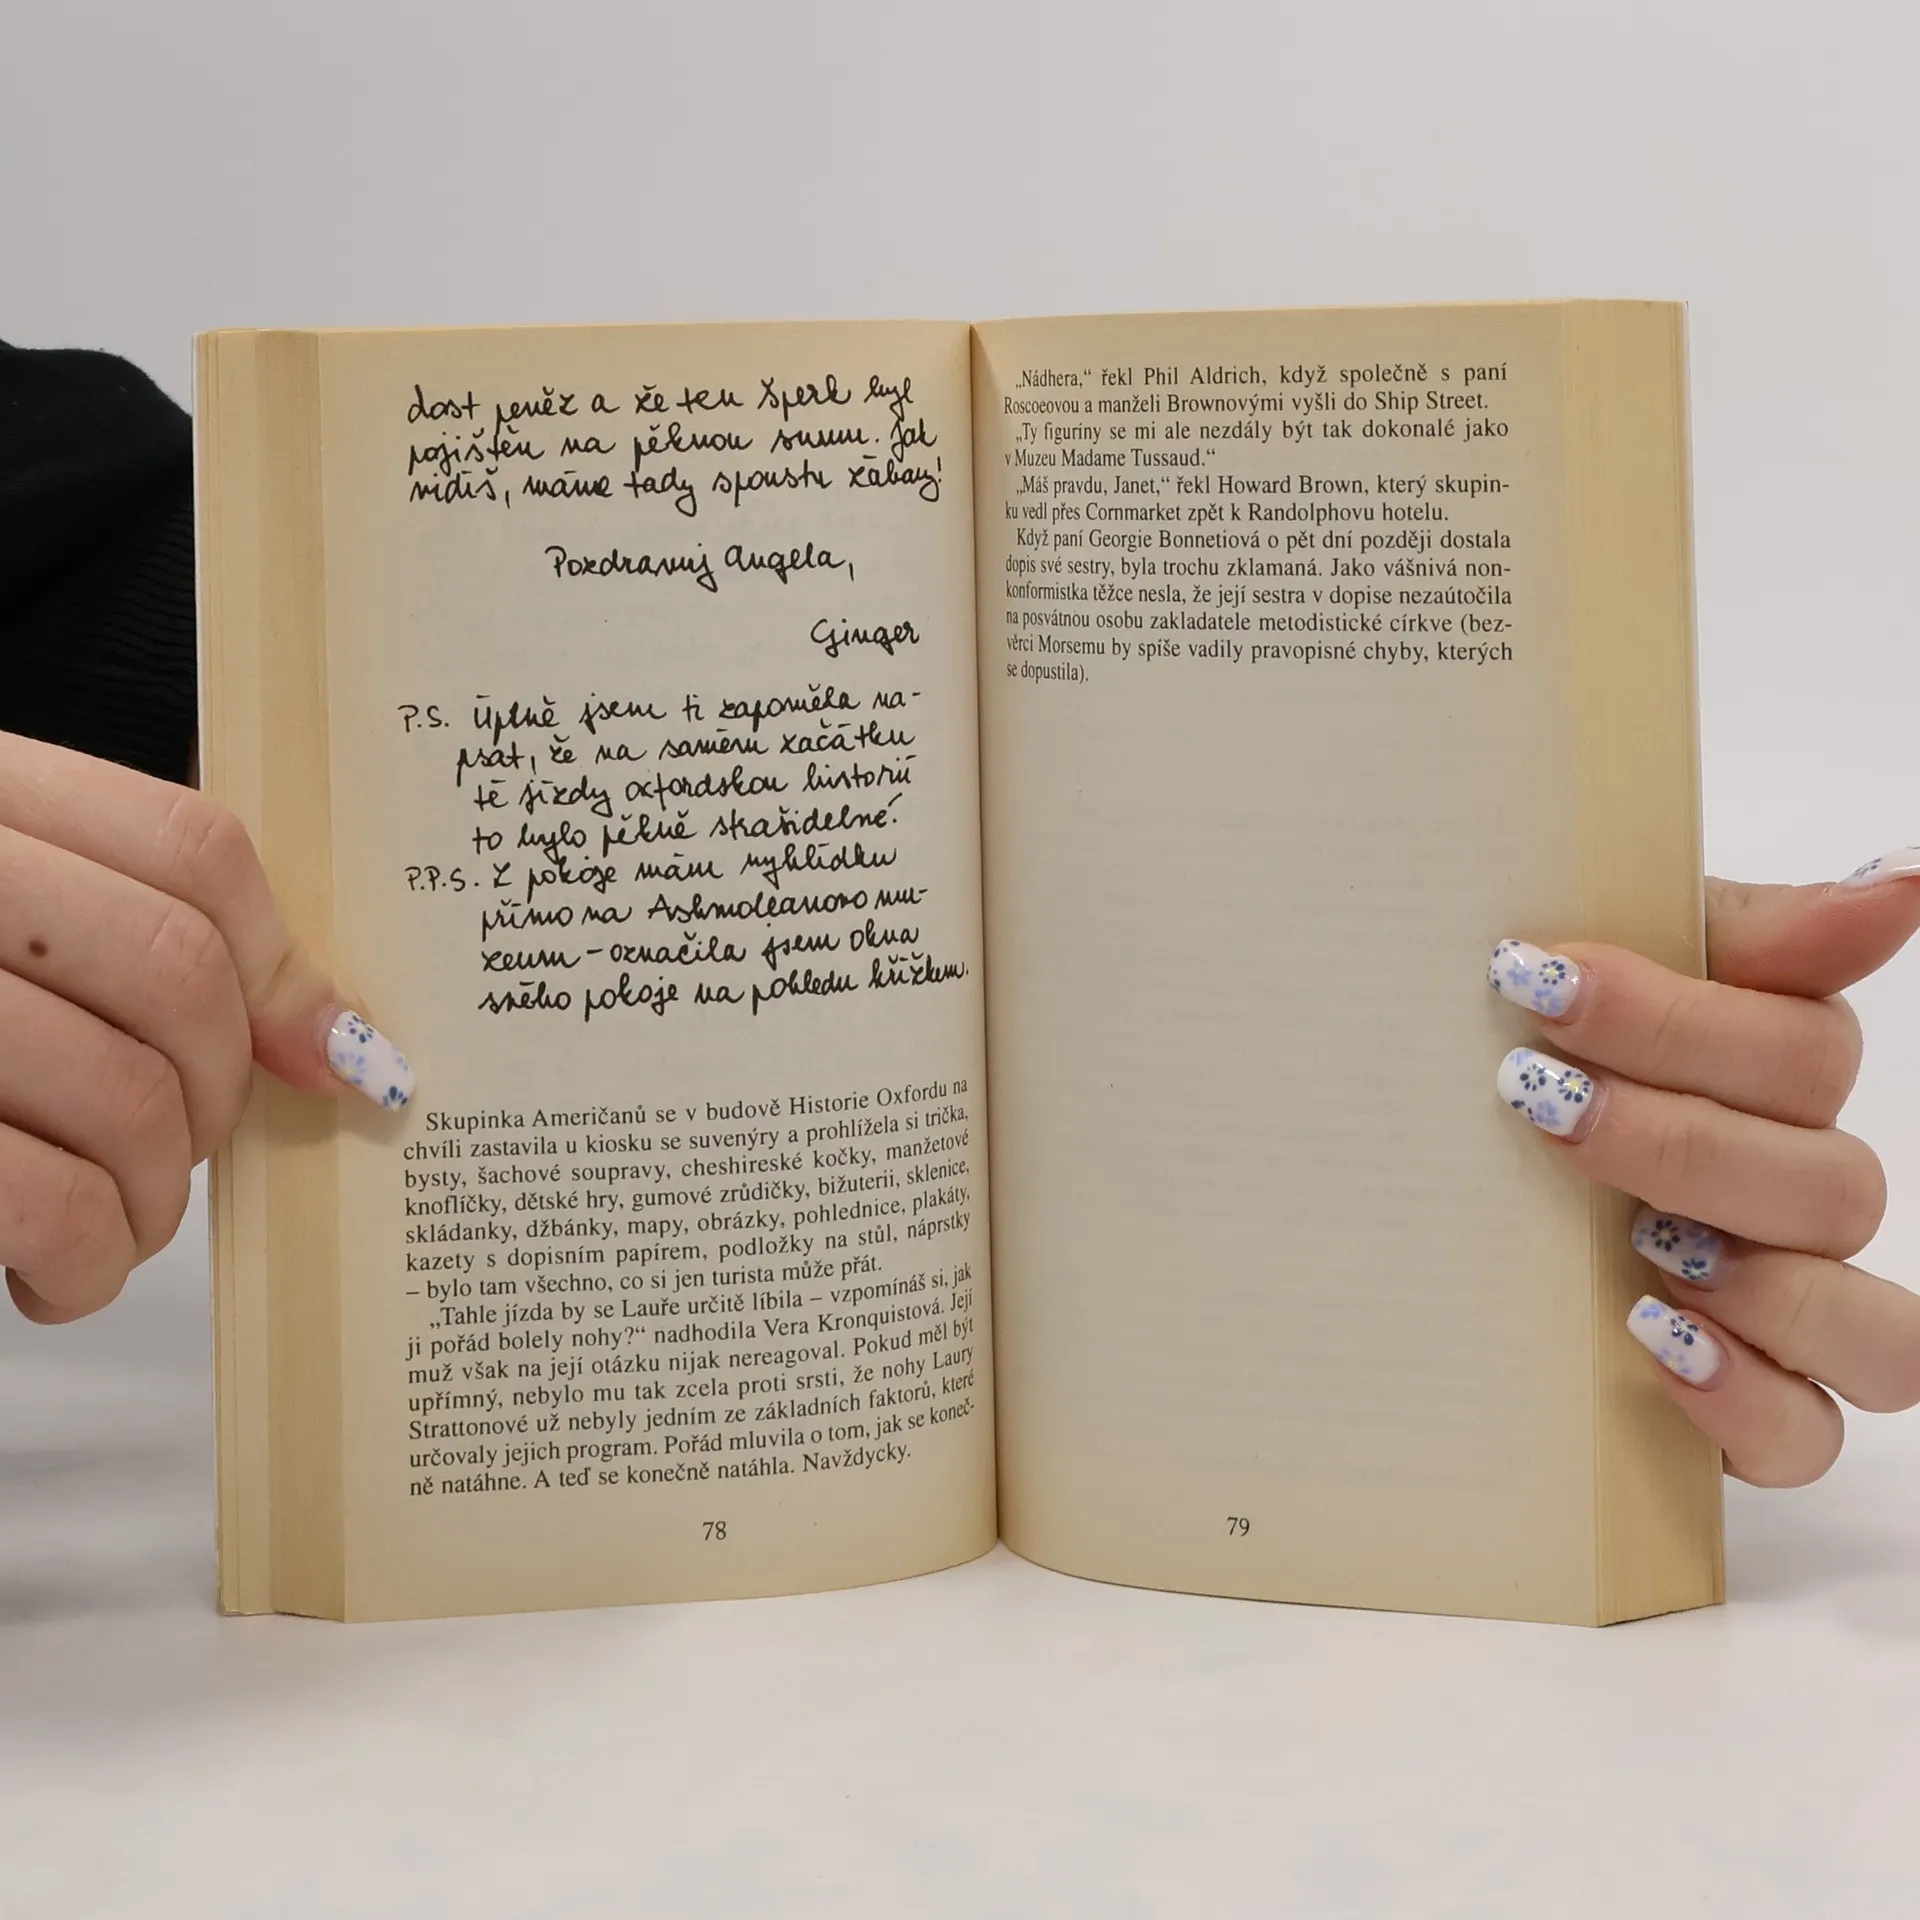 dost peněz a že ten šperk byl
pojištěn na pěknou sumu. Jak
vidíš, máme tady spoustu zábavy!
Pozdravuj Angela,
Ginger
P.S. Úplně jsem ti zapoměla na-
psat, že na samém začátku
té jízdy oxfordskou historií
to bylo pěkně strašidelné.
P.P.S. Z pokoje mám vyhlídku
přímo na Ashmoleanovo mu-
zeum – označila jsem okna
svého pokoje na pohledu křížkem.
Skupinka Američanů se v budově Historie Oxfordu na
chvíli zastavila u kiosku se suvenýry a prohlížela si trička,
bysty, šachové soupravy, cheshireské kočky, manžetové
knoflíčky, dětské hry, gumové zrůdičky, bižuterii, sklenice,
skládanky, džbánky, mapy, obrázky, pohlednice, plakáty,
kazety s dopisním papírem, podložky na stůl, náprstky
– bylo tam všechno, co si jen turista může přát.
„Tahle jízda by se Lauře určitě líbila – vzpomínáš si, jak
ji pořád bolely nohy?“ nadhodila Vera Kronquistová. Její
muž však na její otázku nijak nereagoval. Pokud měl být
upřímný, nebylo mu tak zcela proti srsti, že nohy Laury
Strattonové už nebyly jedním ze základních faktorů, které
určovaly jejich program. Pořád mluvila o tom, jak se koneč-
ně natáhne. A teď se konečně natáhla. Navždycky.
78
„Nádhera,“ řekl Phil Aldrich, když společně s paní
Roscoeovou a manželi Brownovými vyšli do Ship Street.
„Ty figuríny se mi ale nezdály být tak dokonalé jako
v Muzeu Madame Tussaud.“
„Máš pravdu, Janet,“ řekl Howard Brown, který skupin-
ku vedl přes Cornmarket zpět k Randolphovu hotelu.
Když paní Georgie Bonnetiová o pět dní později dostala
dopis své sestry, byla trochu zklamaná. Jako vášnivá non-
konformistka těžce nesla, že její sestra v dopise nezaútočila
na posvátnou osobu zakladatele metodistické církve (bez-
věrci Morsemu by spíše vadily pravopisné chyby, kterých
se dopustila).
79